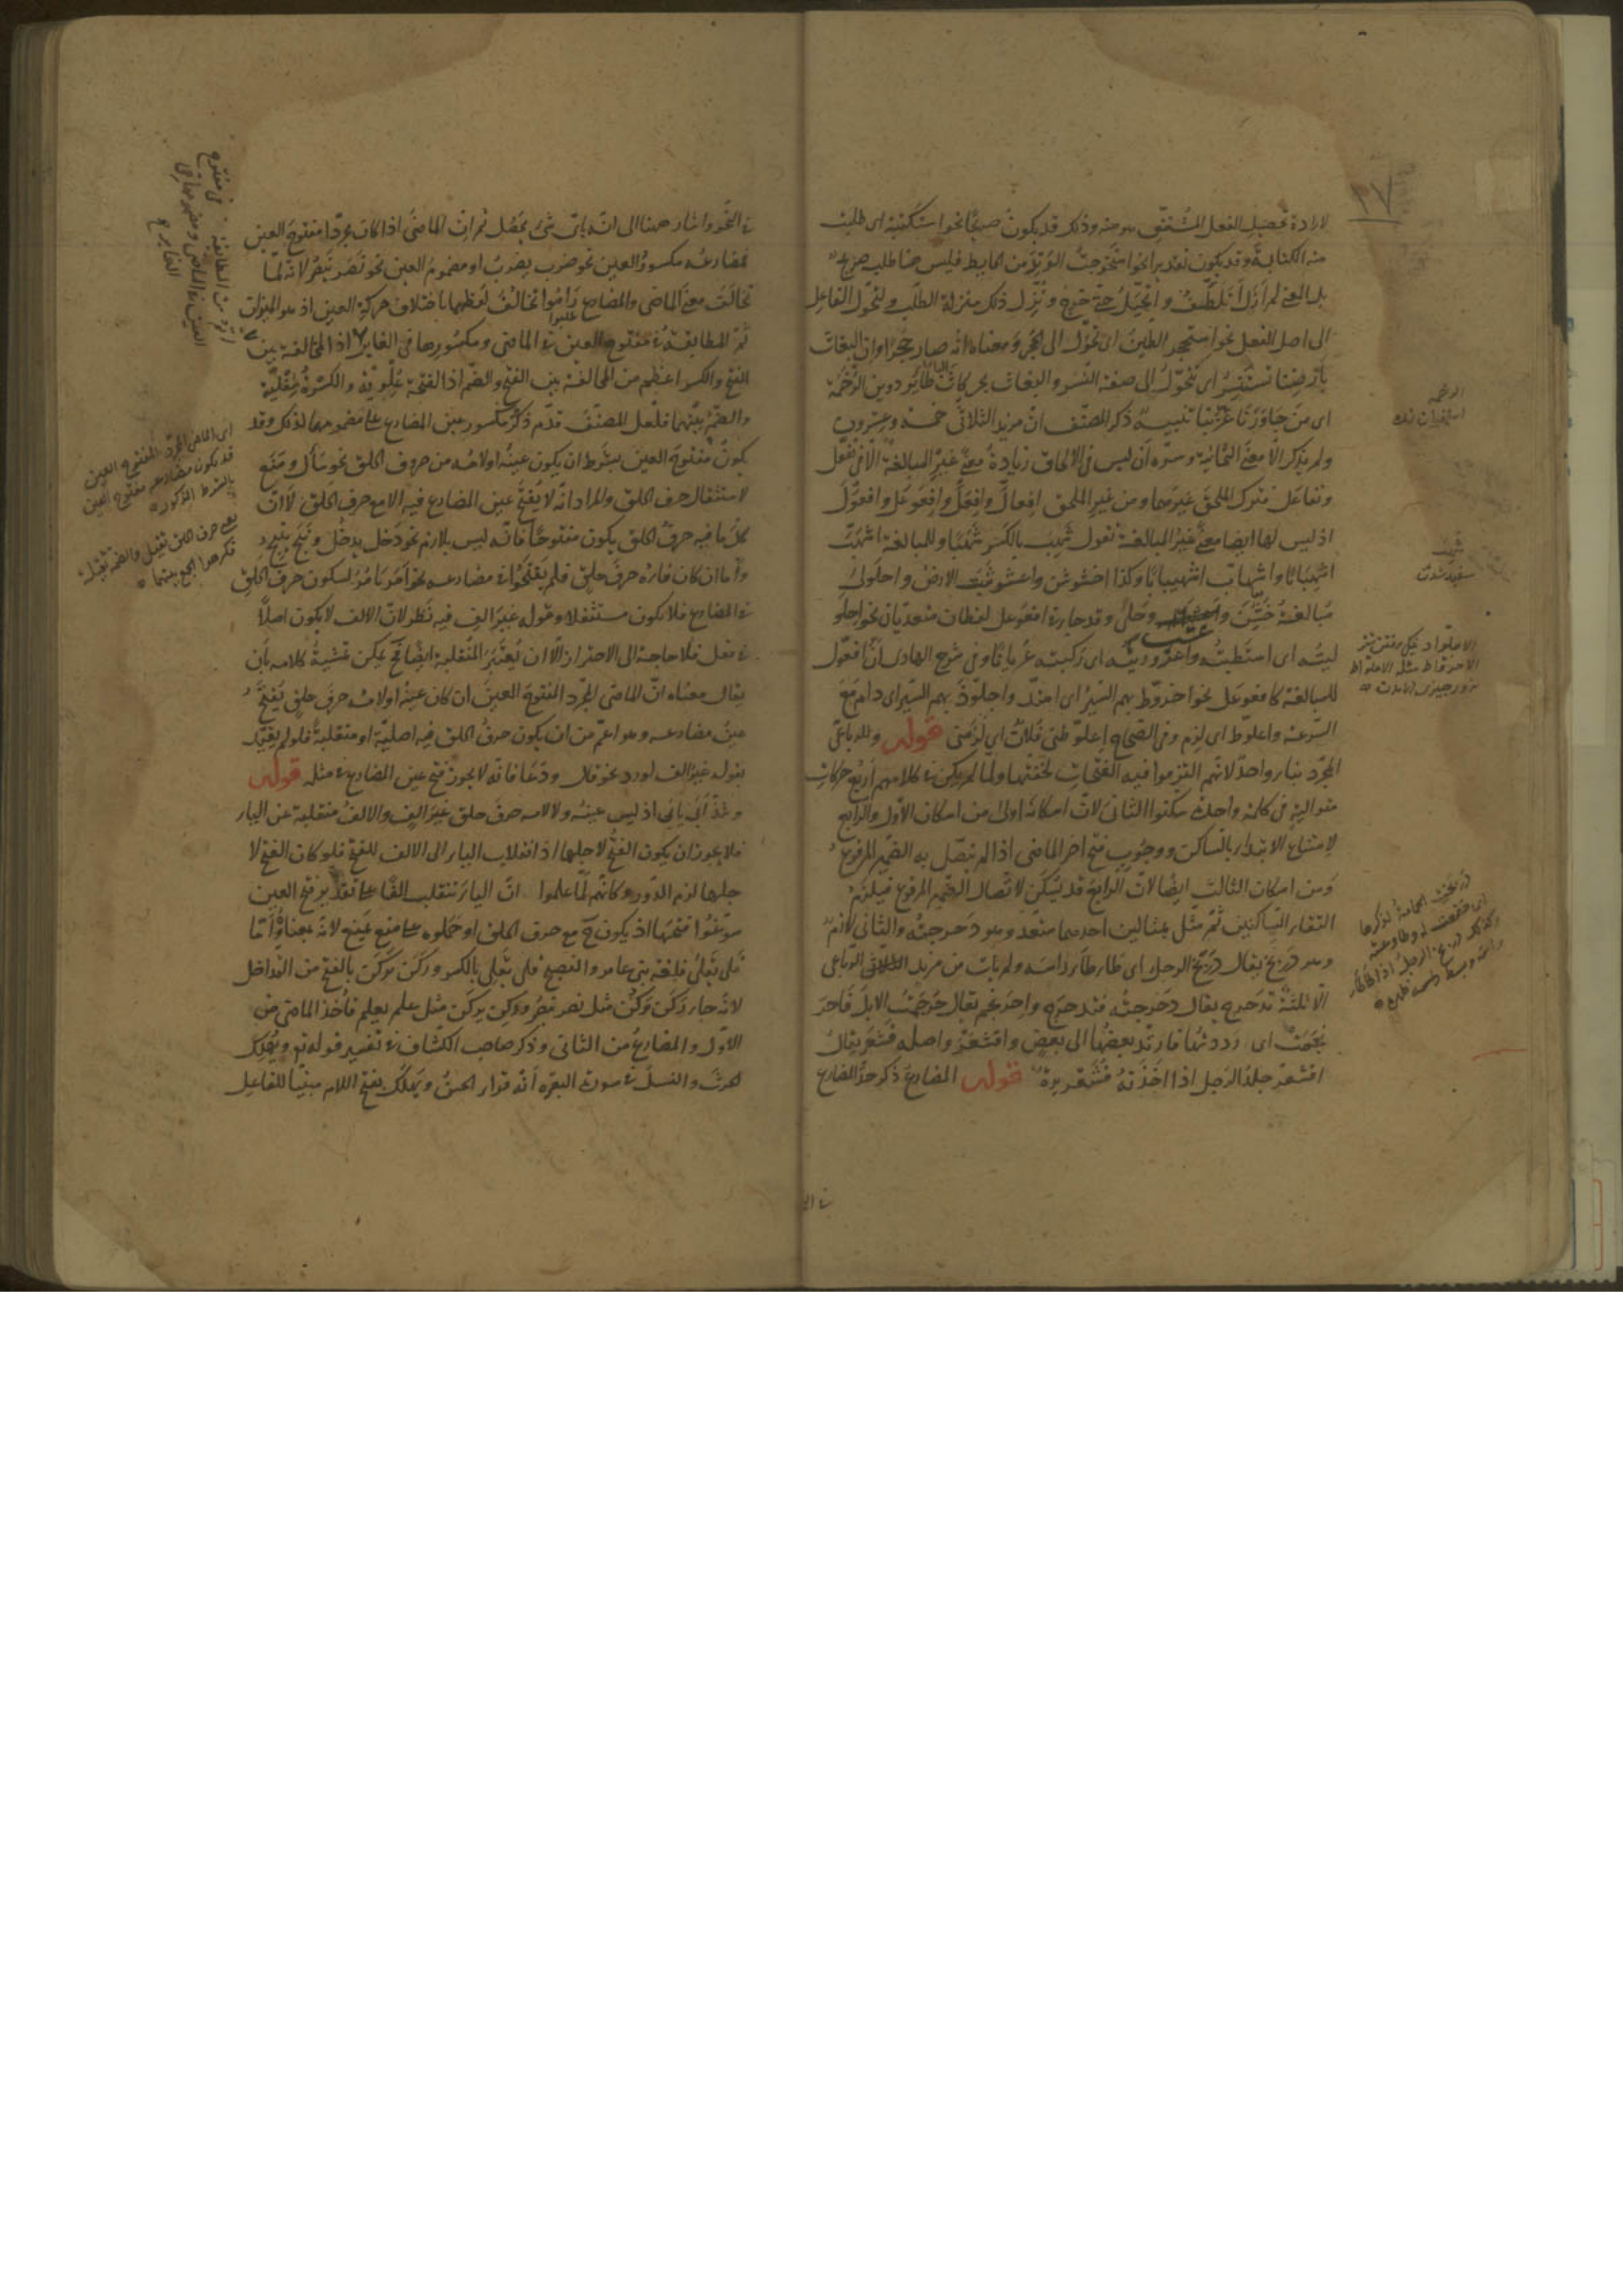 ٣٧
لارادة تحصيل الفعل المشتق هو منه وذلك قد يكون صريحًا نحو استكتبته اى طلبت
منه الكتابة وقد يكون تقديرا نحو استخرجت الوتد من الحايط فليس هنا طلب صريح
بل المعنى لم ازل اتلطّف و اتحيّل حتى خرج و نُزّل ذلك منزلة الطلب و لتحوّل الفاعل
الى اصل الفعل نحو استحجر الطين اى تحوّل الى الحجر و معناه انه صار حجرًا وان البغاث
بارضنا تستنسر اى تتحوّل الى صفة النسر والبغاث بحركات الباء طائر دوين الرخمة
اى من جاورنا عزّ بنا تنبيه ذكر المصنف انّ مزيد الثلاثى خمسة وعشرون
ولم يذكر الا معنى الثمانية وسرّه ان ليس فى الالحاق زيادة معنى غير المبالغة الا فى تفعّل
وتفاعل فترك الملحق غيرهما ومن غير الملحق افعالّ وافعلّ وافعوعل وافعوّل
اذ ليس لها ايضا معنى غير المبالغة تقول شهب بالكسر شهبًا وللمبالغة اشهبّ
اشهبابًا واشهابّ اشهيبابًا وكذا اخشوشن واعشوشبت الارض واحلولى
مبالغة خشن وعشب وحلى وقد جاء من افعوعل لفظان متعديان نحو احلو
ليته اى استطبته واعروريته اى ركبته عريانًا وفى شرح الهادى انّ افعوّل
للمبالغة كافعوعل نحو اخروّط بهم السير اى امتدّ واجلوّذ بهم السير اى دام مع
السرعة واعلوّط اى لزم وفى الصحاح اعلوّطنى فلان اى لزمنى قوله وللرباعى
المجرّد بناء واحد لانهم التزموا فيه الفتحات لخفتها ولما لم يكن فى كلامهم اربع حركات
متوالية فى كلمة واحدة سكنوا الثانى لانّ اسكانه اولى من اسكان الاول والرابع
لامتناع الابتداء بالساكن ووجوب فتح اخر الماضى اذا لم يتصل به الضمير المرفوع
ومن اسكان الثالث ايضا لانّ الرابع قد يسكن لاتصال الضمير المرفوع فيلزم
التقاء الساكنين ثم مثل بمثالين احدهما متعد وهو دحرجته والثانى لازم
وهو دربخ يقال دربخ الرجل اى طاطأ رأسه ولم يأت من مزيد الرباعى
الا ثلثة تدحرج يقال دحرجته فتدحرج واحرنجم يقال حرجمت الابل فاحر
نجمت اى رددتها فارتدّ بعضها الى بعض واقشعرّ واصله قشعر يقال
اقشعرّ جلد الرجل اذا اخذته قشعريرة قوله المضارع ذكر حدّ المضارع
الرخمة
شهب
سفيد شدن
دربخت الحمامة لذكرها
اى خضعت له وطاوعته
وكذلك دربخ الرجل اذا طأطأ
رأسه وبسط ظهره
فى النحو واشار هنا الى انه باىّ شئ يحصل ثم انّ الماضى اذا كان مجرّدا مفتوح العين
فمضارعه مكسور العين نحو ضرب يضرب او مضموم العين نحو نصر ينصر لانه لمّا
تخالف معنى الماضى والمضارع راموا تخالف لفظهما باختلاف حركة العين اذ هو الميزان
ثم المطابقة فى مفتوح العين فى الماضى ومكسورها فى الغابر اذ المخالفة بين
الفتح والكسر اعظم من المخالفة بين الفتح والضم اذ الفتحة علوية والكسرة سفلية
والضمّ بينهما فلعل المصنف قدّم ذكر مكسور عين المضارع على مضمومها لذلك وقد
يكون مفتوح العين بشرط ان يكون عينه او لامه من حروف الحلق نحو سأل ومنع
لاستثقال حرف الحلق والمراد انه لا يفتح عين المضارع فيه الا مع حرف الحلق لا انّ
كلّ ما فيه حرف الحلق يكون مفتوحًا فانّه ليس بلازم نحو دخل يدخل ونبح ينبح
وامّا ان كان فاؤه حرف حلق فلم يفتحوا فى مضارعه نحو امر يامر لسكون حرف الحلق
فى المضارع فلا يكون مستثقلا وقوله غير الف فيه نظر لانّ الالف لا يكون اصلاً
فى فعل فلا حاجة الى الاحتراز الا ان يعتبر المنقلبة ايضا يمكن تمشية كلامه بان
يقال معناه انّ الماضى المجرّد المفتوح العين ان كان عينه او لامه حرف حلق يفتح
عين مضارعه وهو اعمّ من ان يكون حرف الحلق فيه اصليّة او منقلبة فلو لم يقيّد
بقوله غير الف لورد نحو قال ودعا فانّه لا يجوز فتح عين المضارع فى مثله قوله
وشذّ ابى يابى اذ ليس عينه ولا لامه حرف حلق غير الف والالف منقلبة عن الياء
فلا يجوز ان يكون الفتح لاجلها اذ انقلاب الياء الى الالف للفتح فلو كان الفتح لا
جلها لزم الدور وكانهم لمّا علموا انّ الياء تنقلب الفًا على تقدير فتح العين
سوّغوا فتحها اذ يكون ح مع حرف الحلق او حملوه على منع يمنع لانه بمعناه وامّا
قلى يقلى فلغة بنى عامر والفصيح قلى يقلى بالكسر وركن يركن بالفتح من التداخل
لانه جاء ركن يركن مثل نصر ينصر وركن يركن مثل علم يعلم فاخذ الماضى من
الاول والمضارع من الثانى وذكر صاحب الكشاف فى تفسير قوله تع ويهلك
الحرث والنسل فى سورة البقرة انّه قرأ الحسن ويهلك بفتح اللام مبنيّا للفاعل
اى الماضى المجرّد المفتوح العين
قد يكون مضارعه مفتوح العين
بالشرط المذكور
حرف الحلق ثقيل والضمة ثقيلة
فكرهوا الجمع بينهما